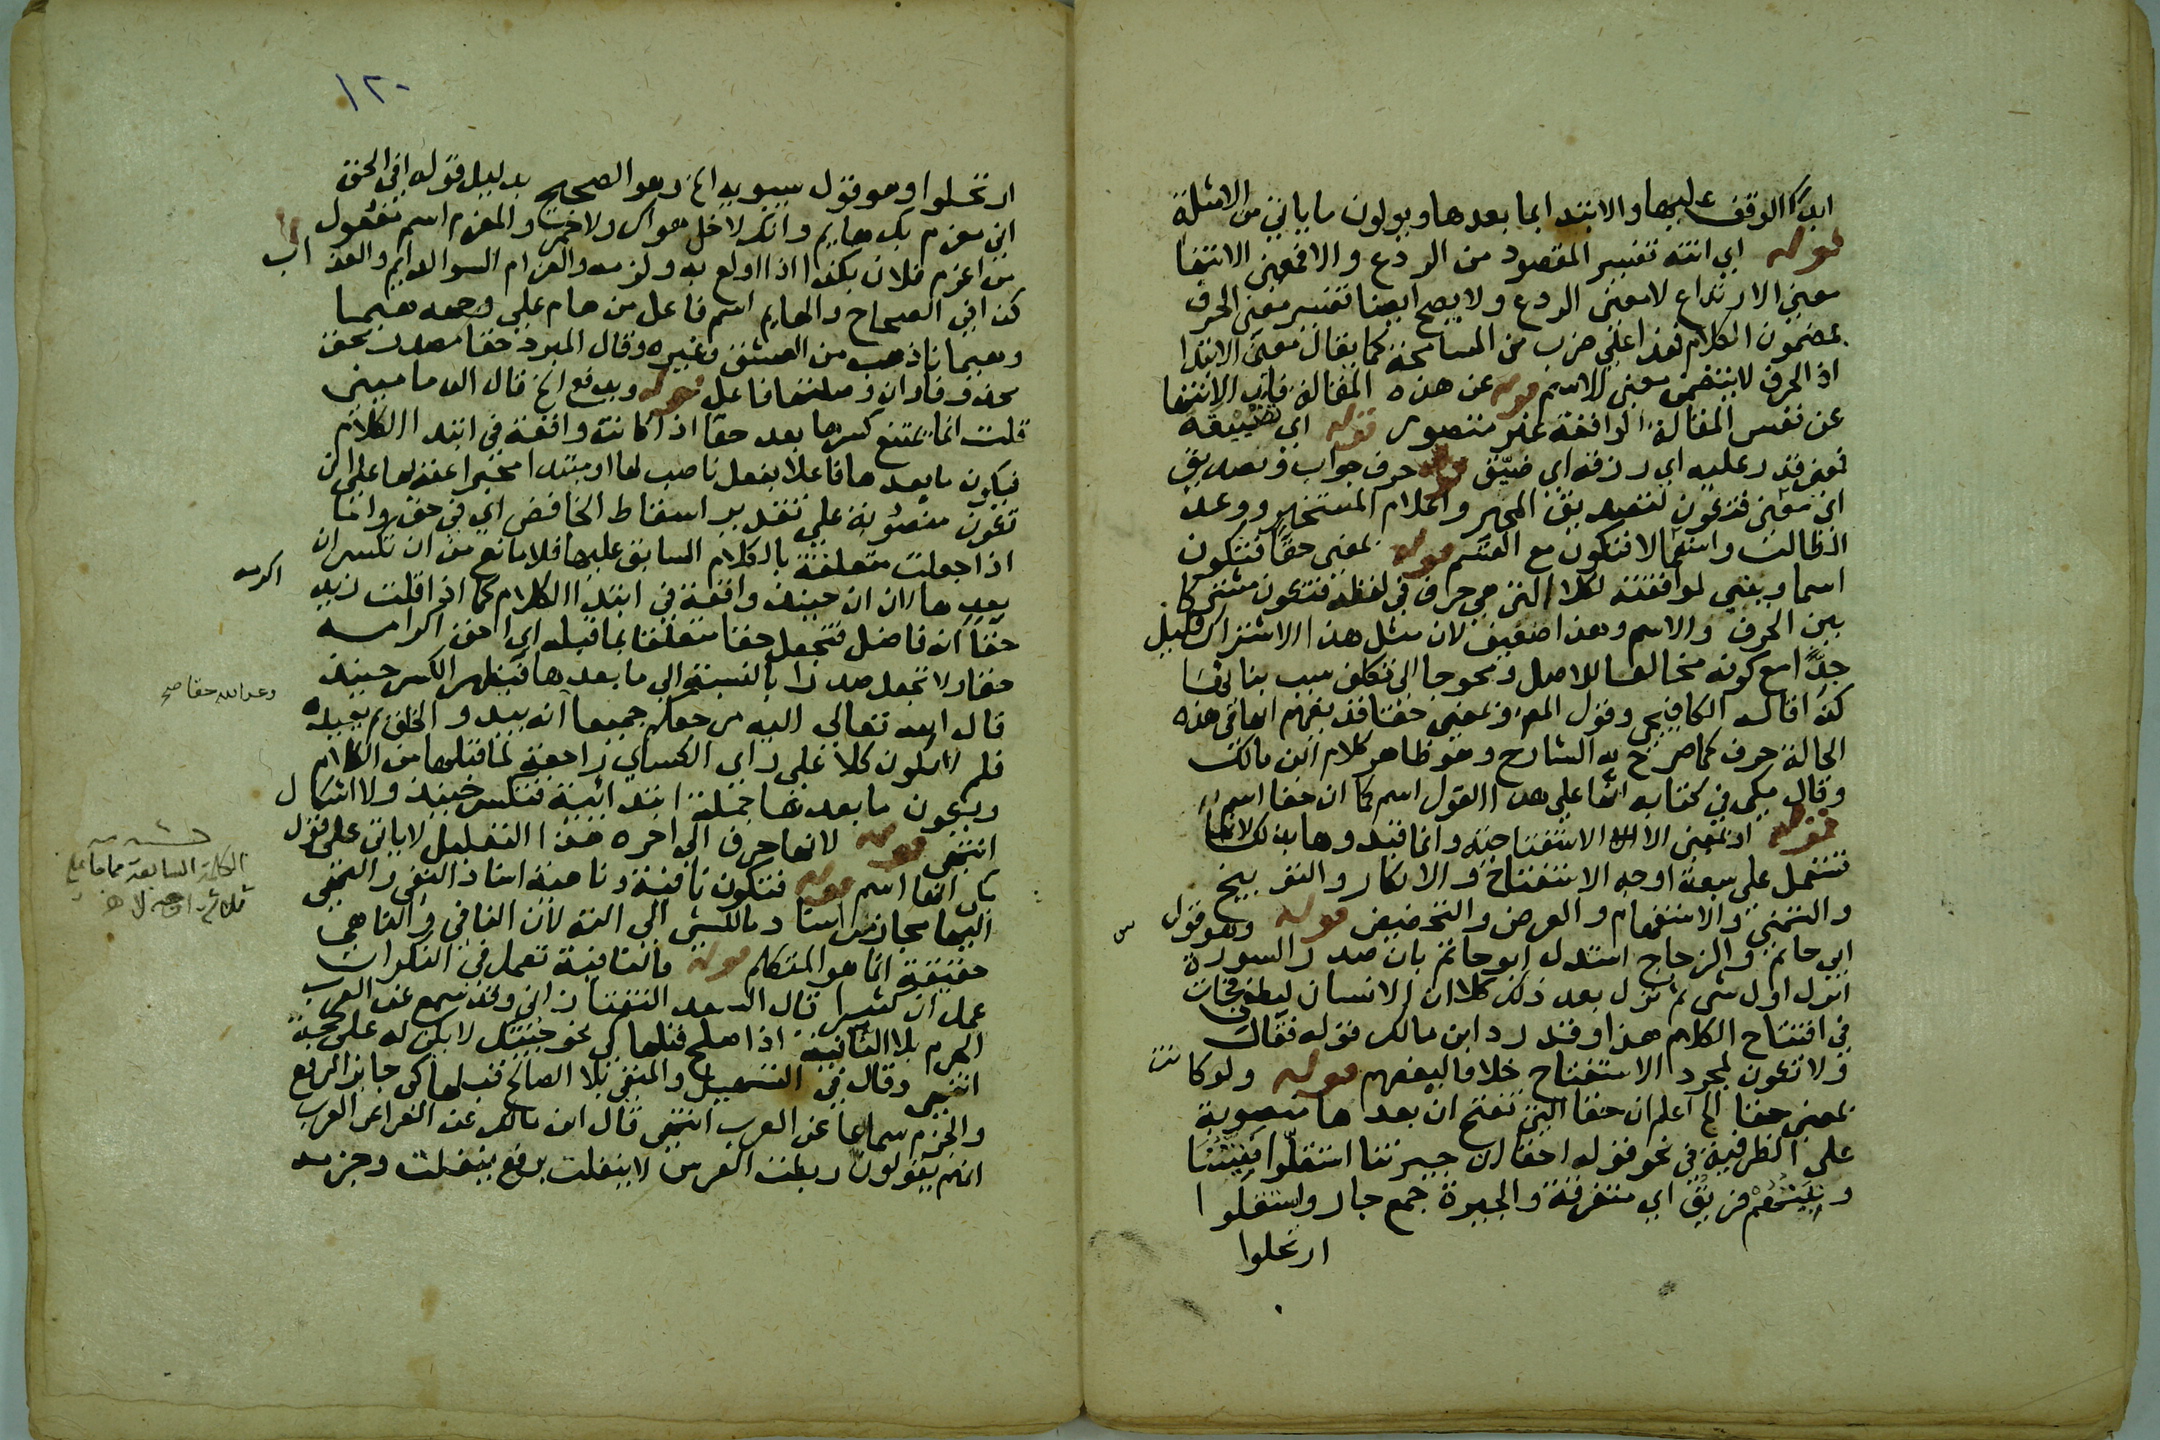 ابدا الوقف عليها والابتدا بما بعدها ويولون ما ياتي من الامثلة
قوله اي انته تفسير المقصود من الردع والا فمعنى الانتها
معنى الارتداع لا معنى الردع ولا يصح ايضا تفسير معنى الحرف
بمضمون الكلام فهذا على ضرب من المسامحة كما يقال معنى الابتدا
اذ الحرف لا يتضمن معنى الاسم قوله عن هذه المقالة فان الانتها
عن نفس المقالة الواقعة غير متصور قوله اي
فمن قدر عليه اي رزقه اي ضيق قوله حرف جواب وتصديق
اي معنى فتكون لتصديق المخبر واعلام المستخبر ووعد
الطالب واستعمالا فتكون مع القسم قوله بمعنى حقا فتكون
اسما وبني لموافقته لكلا التي هي حرف في لفظه فتكون مشتركا
بين الحرف والاسم وهذا ضعيف لان مثل هذا الاشتراك قليل
جدًّا مع كونه مخالفا للاصل ومحوجا الى تكلف سبب بنائها
كذا قاله الكافيجي وقول المص وبمعنى حقا قد يفهم انها في هذه
الحالة حرف كما صرح به الشارح وهو ظاهر كلام ابن مالك
وقال مكي في كتابه انها على هذا القول اسم كما ان حقا اسم
قوله او بمعنى الا الاستفتاحية وانما قيدوها بذلك لانها
تشتمل على سبعة اوجه الاستفتاح والانكار والتوبيخ
والتمني والاستفهام والعرض والتحضيض قوله وهو قول
ابي حاتم والزجاج استدل ابو حاتم بان صدر السورة
انزل اول شي ثم نزل بعد ذلك كلا ان الانسان ليطغى فجات
في افتتاح الكلام هذا وقد رد ابن مالك قوله فقال
ولا تكون لمجرد الاستفتاح خلافا لبعضهم قوله ولو كانت
بمعنى حقا الخ اعلم ان حقا التي تفتح ان بعدها منصوبة
على الظرفية في نحو قوله احقا ان جيرتنا استقلّوا فنيّتنا
ونيتهم فريق اي متفرقة والجيرة جمع جار واستقلوا
ارتحلوا
١٢٠
ارتحلوا وهو قول سيبويه الخ وهو الصحيح بدليل قوله افي الحق
اني مغرم بك هايم وانك لا خل هواك ولا خمر والمغرم اسم مفعول
من اغرم فلان بكذا اذا اولع به ولزمه والغرام السوال الدايم والعذاب
كذا في الصحاح والهايم اسم فاعل من هام على وجهه هيما
وهيمانا ذهب من العشق وغيره وقال المبرد حقا مصدر بحق
محذوفا وان وصلتها فاعل قوله ويدفع الخ قال الدماميني
قلت انما يمتنع كسرها بعد حقا اذا كانت واقعة في ابتدا الكلام
فيكون ما بعدها فاعلا بفعل ناصب لها او مبتدا مخبرا عنه بها على ان
تكون منصوبة على تقدير اسقاط الخافض اي في حق واما
اذا جعلت متعلقة بالكلام السابق عليها فلا مانع من ان تكسر ان
بعدها لان ان حينئذ واقعة في ابتدا الكلام كما اذا قلت زيد اكرمه
حقا انه فاضل فتجعل حقا متعلقا بما قبله اي احق اكرامه
حقا ولا تجعل صدرا بالنسبة الى ما بعدها فيظهر الكسر حينئذ
قال الله تعالى اليه مرجعكم جميعا انه يبدو الخلق ثم يعيده
وعد الله حقا صح
فلم لا تكون كلا على راي الكساي راجعة لما قبلها من الكلام
ويكون ما بعدها جملة ابتدائية فتكسر حينئذ ولا اشكال
انتهى قوله لانها حرف الى اخره هذا التعليل لا ياتي على قول
بان انها اسم قوله فتكون نافية وناهية اسناد النفي والنهي
الكلمة السابعة مما جا على
ثلاثة اوجه لا
اليها مجاز من اسناد ما للشي الى الته لان النافي والناهي
حقيقة انما هو المتكلم قوله فالنافية تعمل في النكرات
عمل ان كثيرا قال السعد التفتازاني وقد سمع عن العرب
الجزم بلا النافية اذا صلح قبلها كي نحو جيتك لا يكن له على حجة
انتهى وقال في التسهيل والمنفي بلا الصالح قبلها كي جايز الرفع
والجزم سماعا عن العرب انتهى قال ابن مالك عن الفراء عن العرب
انهم يقولون ربطت الفرس لا ينفلت برفع ينفلت وجزمه